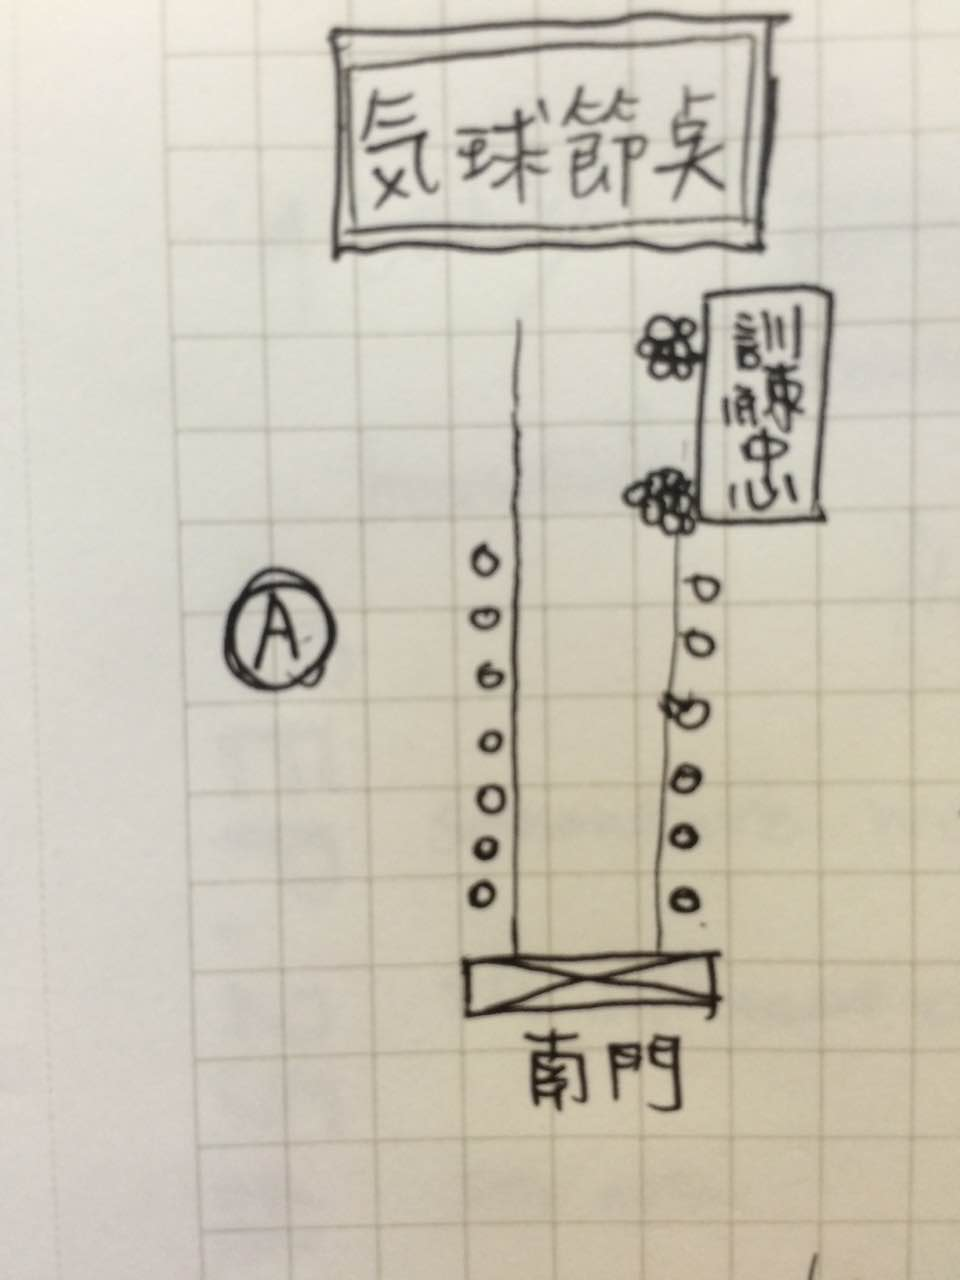 気球節点
訓練中心
A
南門